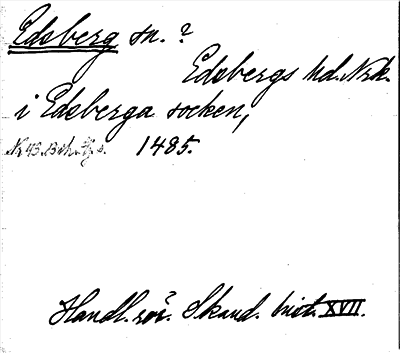 Edsberg sn. ?
Edsbergs hd. Nrk.
i Edsberga socken,
1485.
Handl. rör. Skand. hist. XVII.